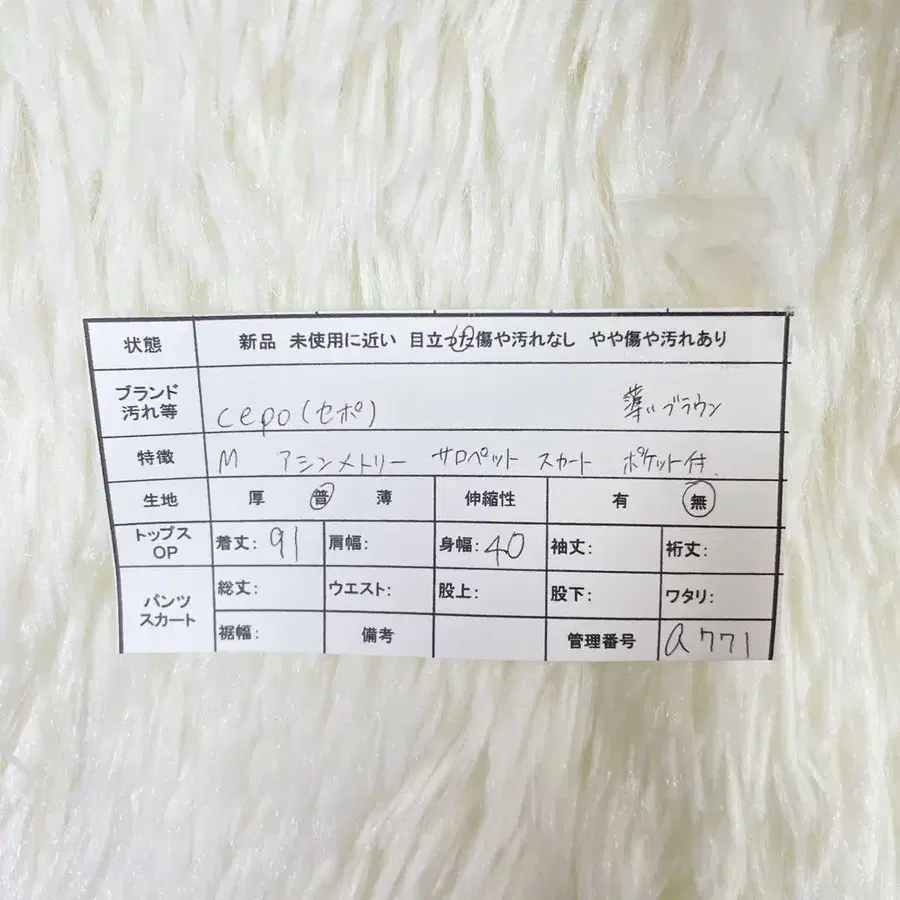 状態 新品 未使用に近い 目立った傷や汚れなし やや傷や汚れあり
ブランド
汚れ等 cepo(セポ) 薄いブラウン
特徴 M アシンメトリー サロペット スカート ポケット付
生地 厚 普 薄 伸縮性 有 無
トップス
OP 着丈: 91 肩幅: 身幅: 40 袖丈: 裄丈:
パンツ
スカート 総丈: ウエスト: 股上: 股下: ワタリ:
裾幅: 備考 管理番号 a771